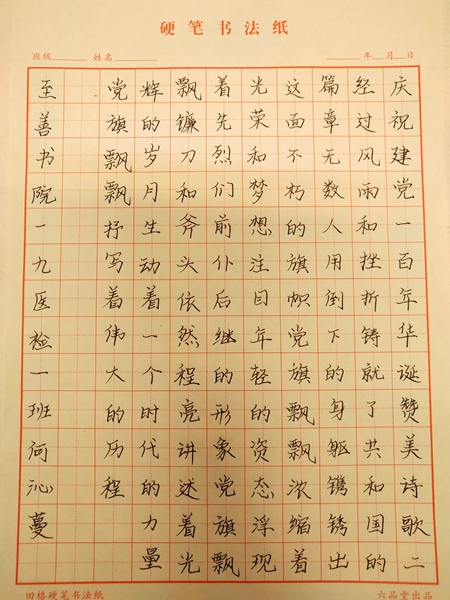 硬笔书法纸
班级 姓名 年 月 日
庆祝建党一百年华诞赞美诗歌二
经过风雨和挫折铸就了共和国的
篇章无数人用倒下的身躯镌锈出
这面不朽的旗帜党旗飘飘浓缩着
光荣和梦想注目年轻的资态浮现
着先烈们前仆后继的形象党旗飘
飘镰刀和斧头依然程亮讲述着光
辉的岁月生动着一个时代的力量
党旗飘飘抒写着伟大的历程
至善书院一九医检一班何沁蔓
田格硬笔书法纸 六品堂出品